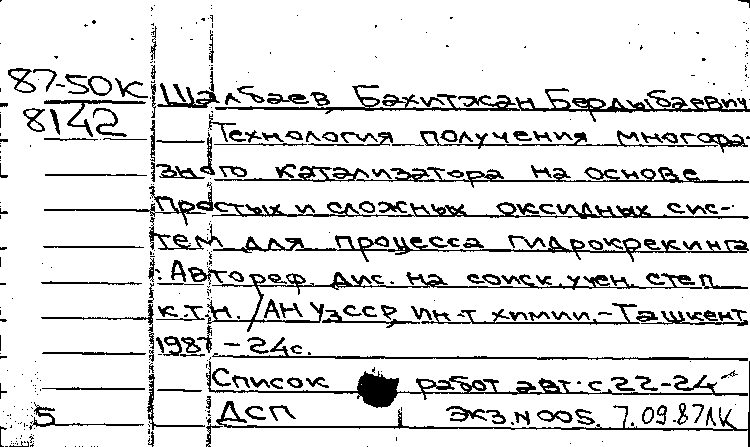 87-50К Шалбаев, Бахитжан Бердыбаевич
8142 Технология получения многора-
зного катализатора на основе
простых и сложных оксидных сис-
тем для процесса гидрокрекинга
: Автореф. дис. на соиск. учен. степ.
к.т.н. / АН УзССР, Ин-т химии.-Ташкент,
1987 - 24с.
Список работ авт.: с.22-24
5 ДСП ЭКЗ.N 005. 7.09.87ЛК